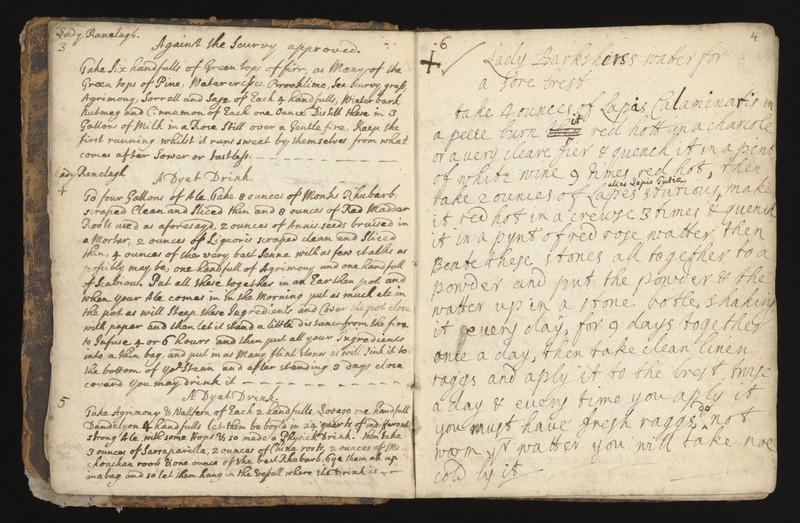 Lady Ranelagh.
3 Against the Scurvy approved.
Take Six handfulls of Green tops of firr, as Many of the
Green tops of Pine, Watercresses, Brooklime, Sea Scurvy grass,
Agrimony, Sorrell and Sage of Each 4 handfulls, Winter bark
Nutmeg and Cinnamon of Each one Ounce Distill these in 3
Gallons of Milk in a Rose Still over a Gentle fire. Keep the
first running whilst it runs sweet by themselves from what
comes after Sower or tastless.
Lady Ranelagh
4 A Dyet Drink.
To four Gallons of Ale, take 8 ounces of Monks Rhubarb,
scraped Clean and Sliced thin and 8 ounces of Red Madder
Roots used as aforesayd, 2 ounces of Annis seeds bruised in
a Mortar, 2 ounces of Liquoris scraped clean and Sliced
thin, 4 ounces of the very best Senna with as few stalks as
possibly may be, one handfull of Agrimony and one handfull
of Scabious. Put all these together in an Earthen pot and
when your Ale comes in in the Morning put as much ale in
the pot as will Steep these Ingredients and Cover the pot close
with paper and then let it stand a little distance from the fire
to Infuse 4 or 6 hours and then put all your Ingredients
into a thin bag, and put in as Many flint stones as will Sink it to
the bottom of ye Stean and after standing 3 days close
coverd you may drink it
A Dyet Drink.
5 Take Agrimony & Wallfern of Each 2 handfulls, Lovage one handfull
Dandelyon 4 handfulls let them be boyld in 24 quarts of indifferent
strong Ale with some Hops & so made a Physick Drink. Then take
3 ounces of Sarsaparilla, 2 ounces of China roots, 2 ounces of Me
choachan roots & one ounce of the best Rhubarb, tye them all up
in a bag and so let them hang in the Vessell where the Drink is
4
6 Lady Barkshires water for
a Sore brest
take 4 ounces of Lapis Calaminaris in
a peece burn it red hott in a charcole
or a very cleare fier & quench it in a pint
of white wine 9 times red hot, then
alias Lapis Tutia
take 2 ounces of Lapes stutious, make
it red hot in a creuse 3 times & quench
it in a pynt of red rose watter then
Beate these stones all together to a
powder and put the powder & the
watter up in a stone botle, shaking
it every day, for 9 days together
once a day, then take clean linen
raggs and aply it to the brest twise
a day & every time you apply it
you must have fresh raggs do not
warm yr watter you will take noe
cold by it